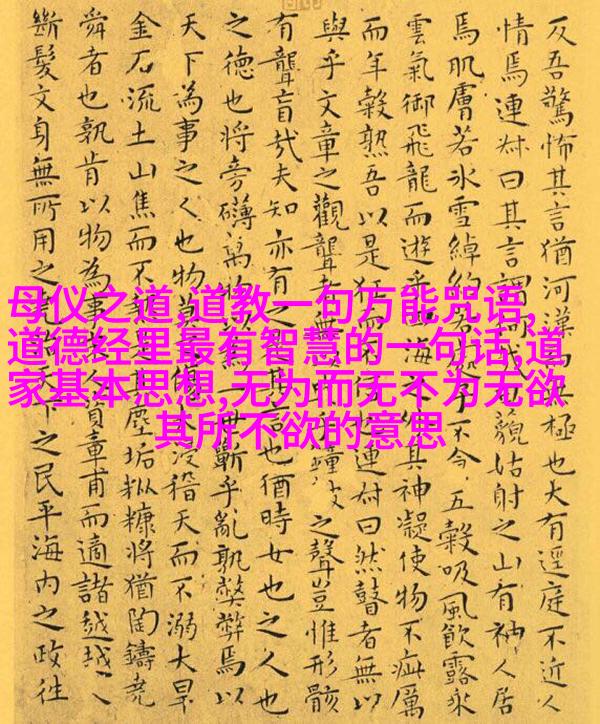 母仪之道,道教一句万能咒语,
道德经里最有智慧的一句话,道
家基本思想,无为而无不为无欲
其所不欲的意思
反吾驚怖其言猶河漢極也大有逕庭不近人
情焉連叔曰其言謂何哉藐姑射之山有神人居
焉肌膚若冰雪綽約若子不食五穀吸風飲露乘
雲氣御飛龍而遊乎四海之外其神凝使物不疵厲
而年穀熟吾以是狂而不連叔曰然瞽者無以
與乎文章之觀聾者無以之聲豈惟形骸
有聾盲哉夫知亦有之是其言也猶時女也之人也
之德也將旁礴萬物以為一世蘄乎亂孰弊弊焉以
天下為事之人也物莫之傷大浸稽天而不溺大旱
金石流土山焦而不熱是其塵垢粃糠將猶陶鑄堯
舜者也孰肯以物為事人資章甫而適諸越越人
斷髮文身無所用之堯治天下之民平海内之政往